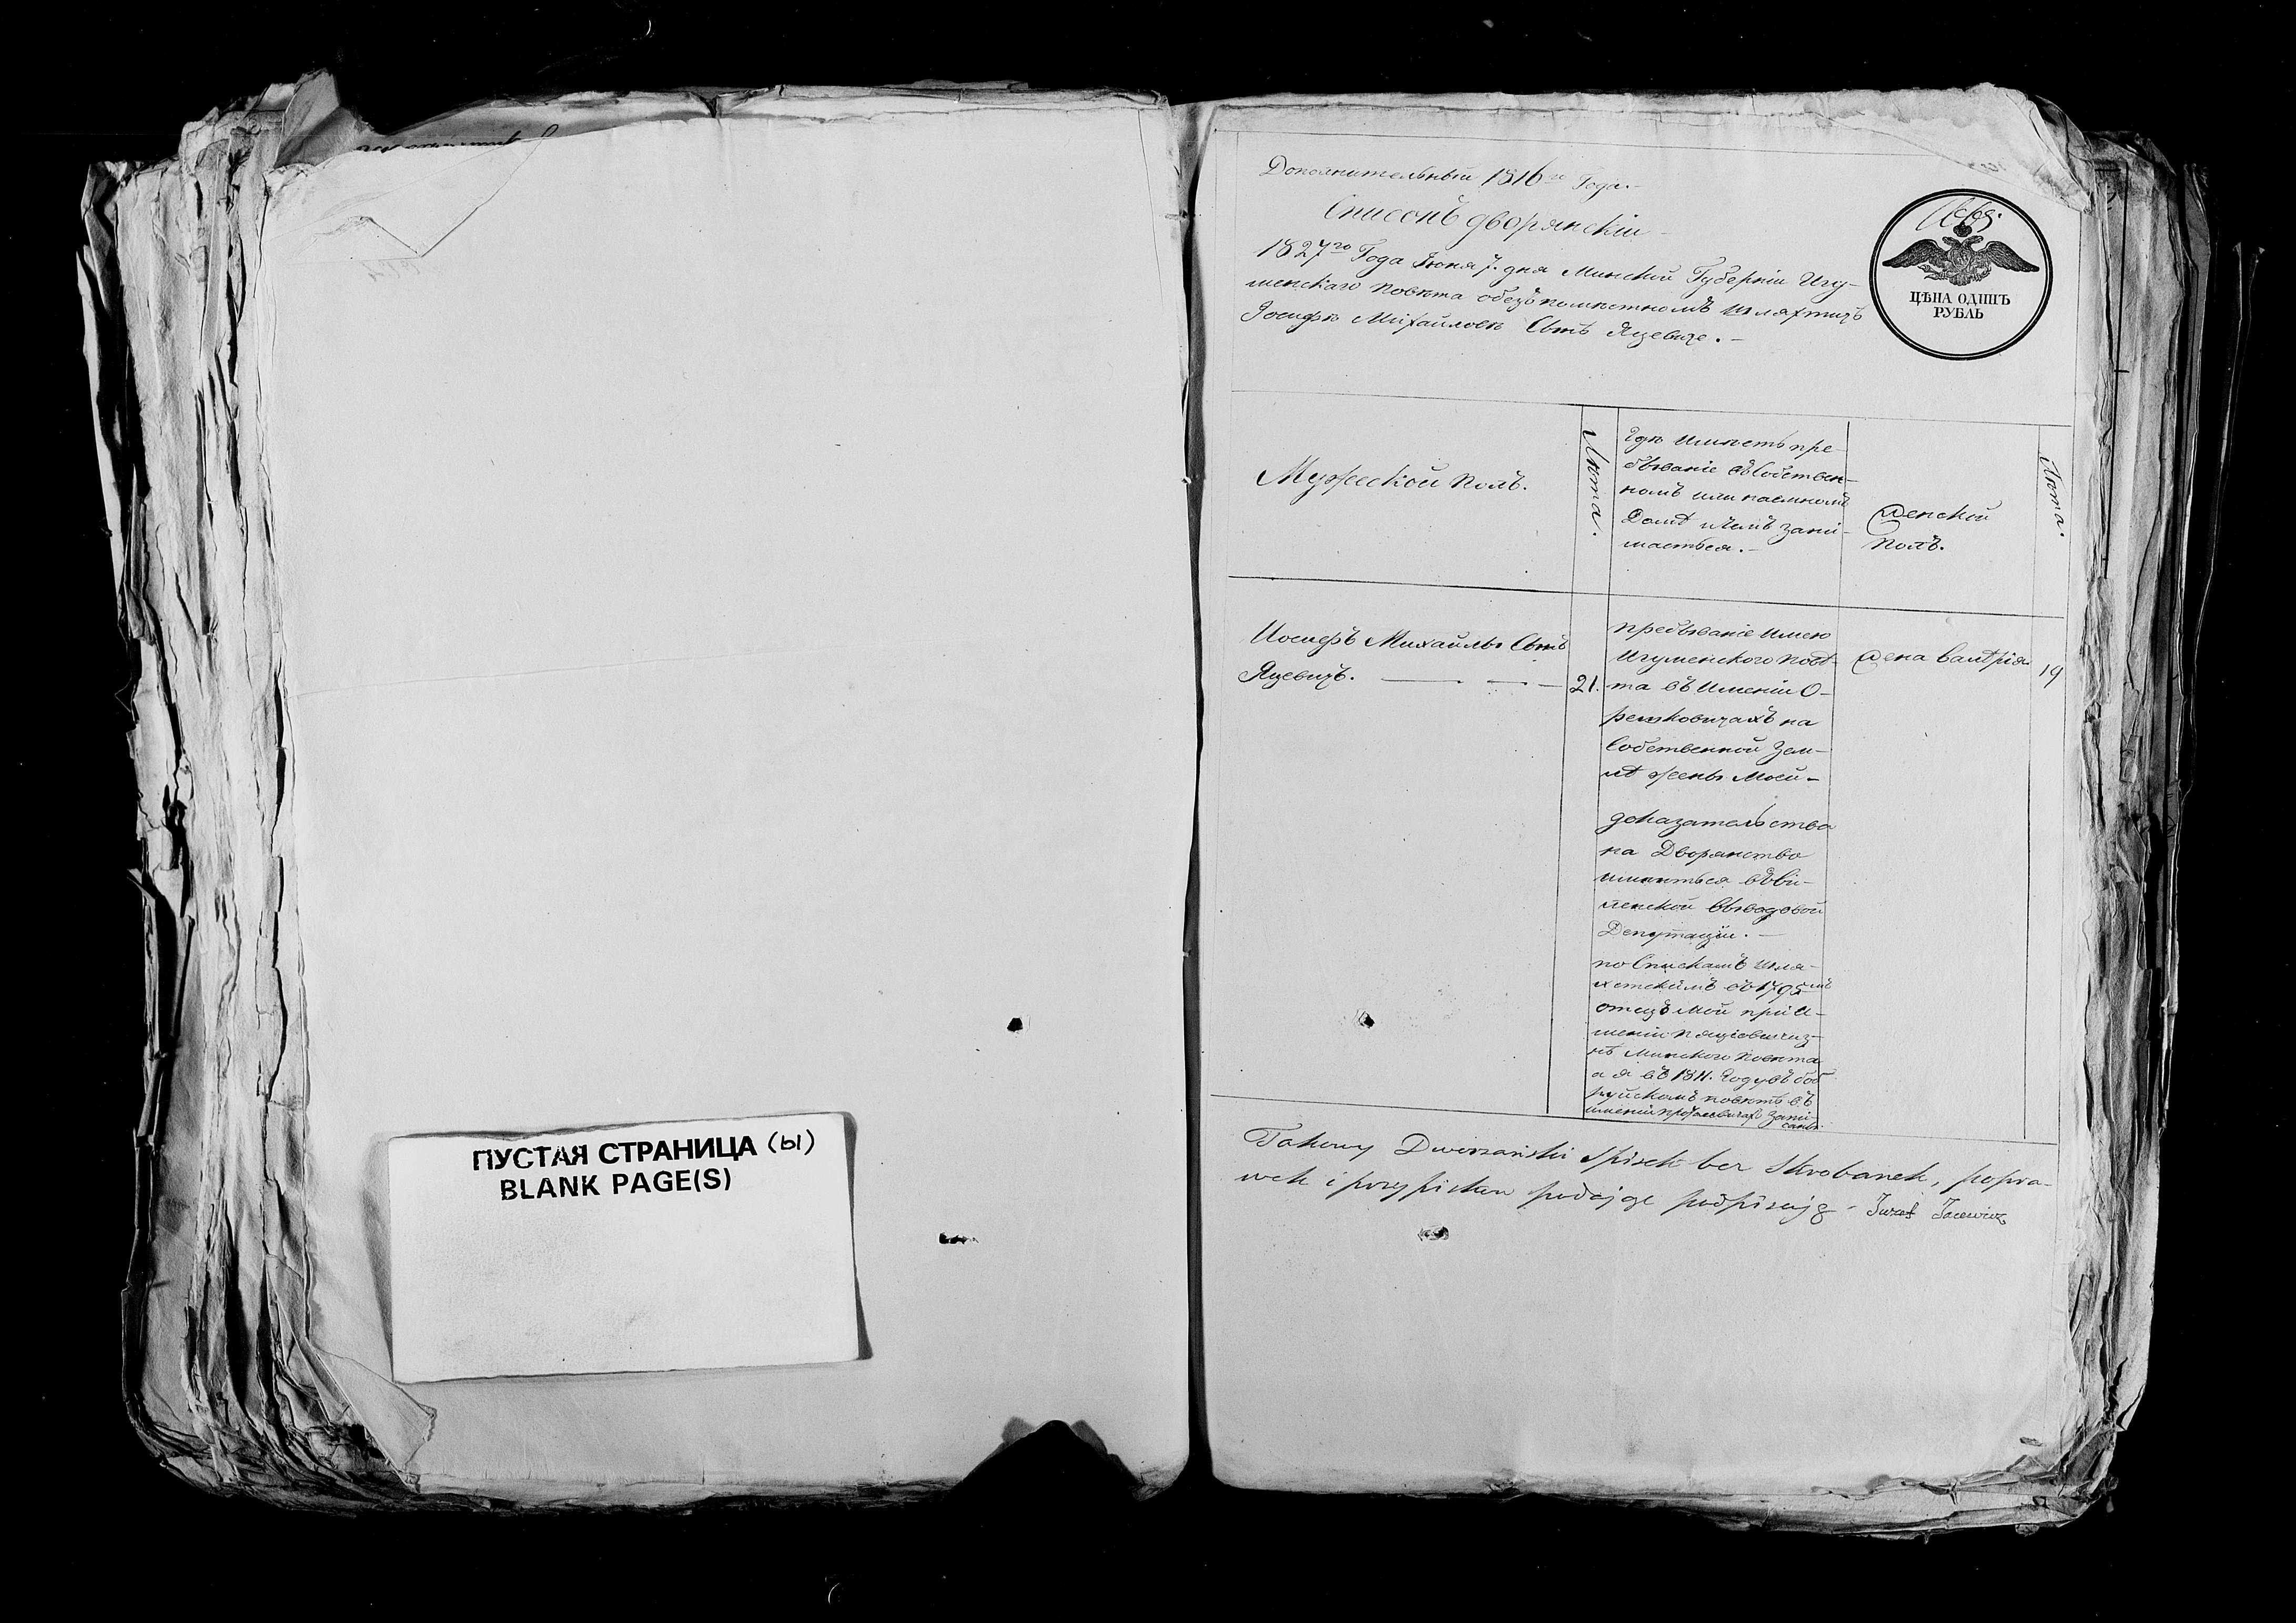 ПУСТАЯ СТРАНИЦА (ы)
BLANK PAGE(S)
Дополнительный 1816го Года.-
Списокъ дворянскiи
1827го Года Iюня 7. дня Минской Губернiи Игу-
менскаго повѣта обезъпомѣстномъ шляхтичъ
Iосифѣ Михайловѣ Сынѣ Яцевиче.-
ЦѢНА ОДИНЪ
РУБЛЬ
Мужеской полъ.
Лѣта.
Гдѣ имѣетъ пре-
бываніе въ Собствен-
номъ или наемномъ
Домѣ и чемъ зани-
маеться.-
Женской
полъ.
Лѣта.
Иосифъ Михайловъ Сынъ
Яцевичъ.
21.
пребываніе имею
Игуменского повѣ-
та въ имѣніи О-
решковичахъ на
Собственной Зем-
лѣ жены моей-
доказательства
на Дворянство
имѣиться въ Ви-
ленской Выводовой
Депутаціи.-
по Спискамъ шля-
хетскимъ въ 1795мъ
отецъ мой при и-
меніи
нѣ Минского повѣта
а я въ 1811. Году въ боб
руйскомъ повѣтѣ въ
имѣніи запи
санъ.
жена Валерія
19
Takowy Dworzański Spisek bez Skrobanek, popra-
wek i przypisków podając podpisuję - Jozef Jacewicz